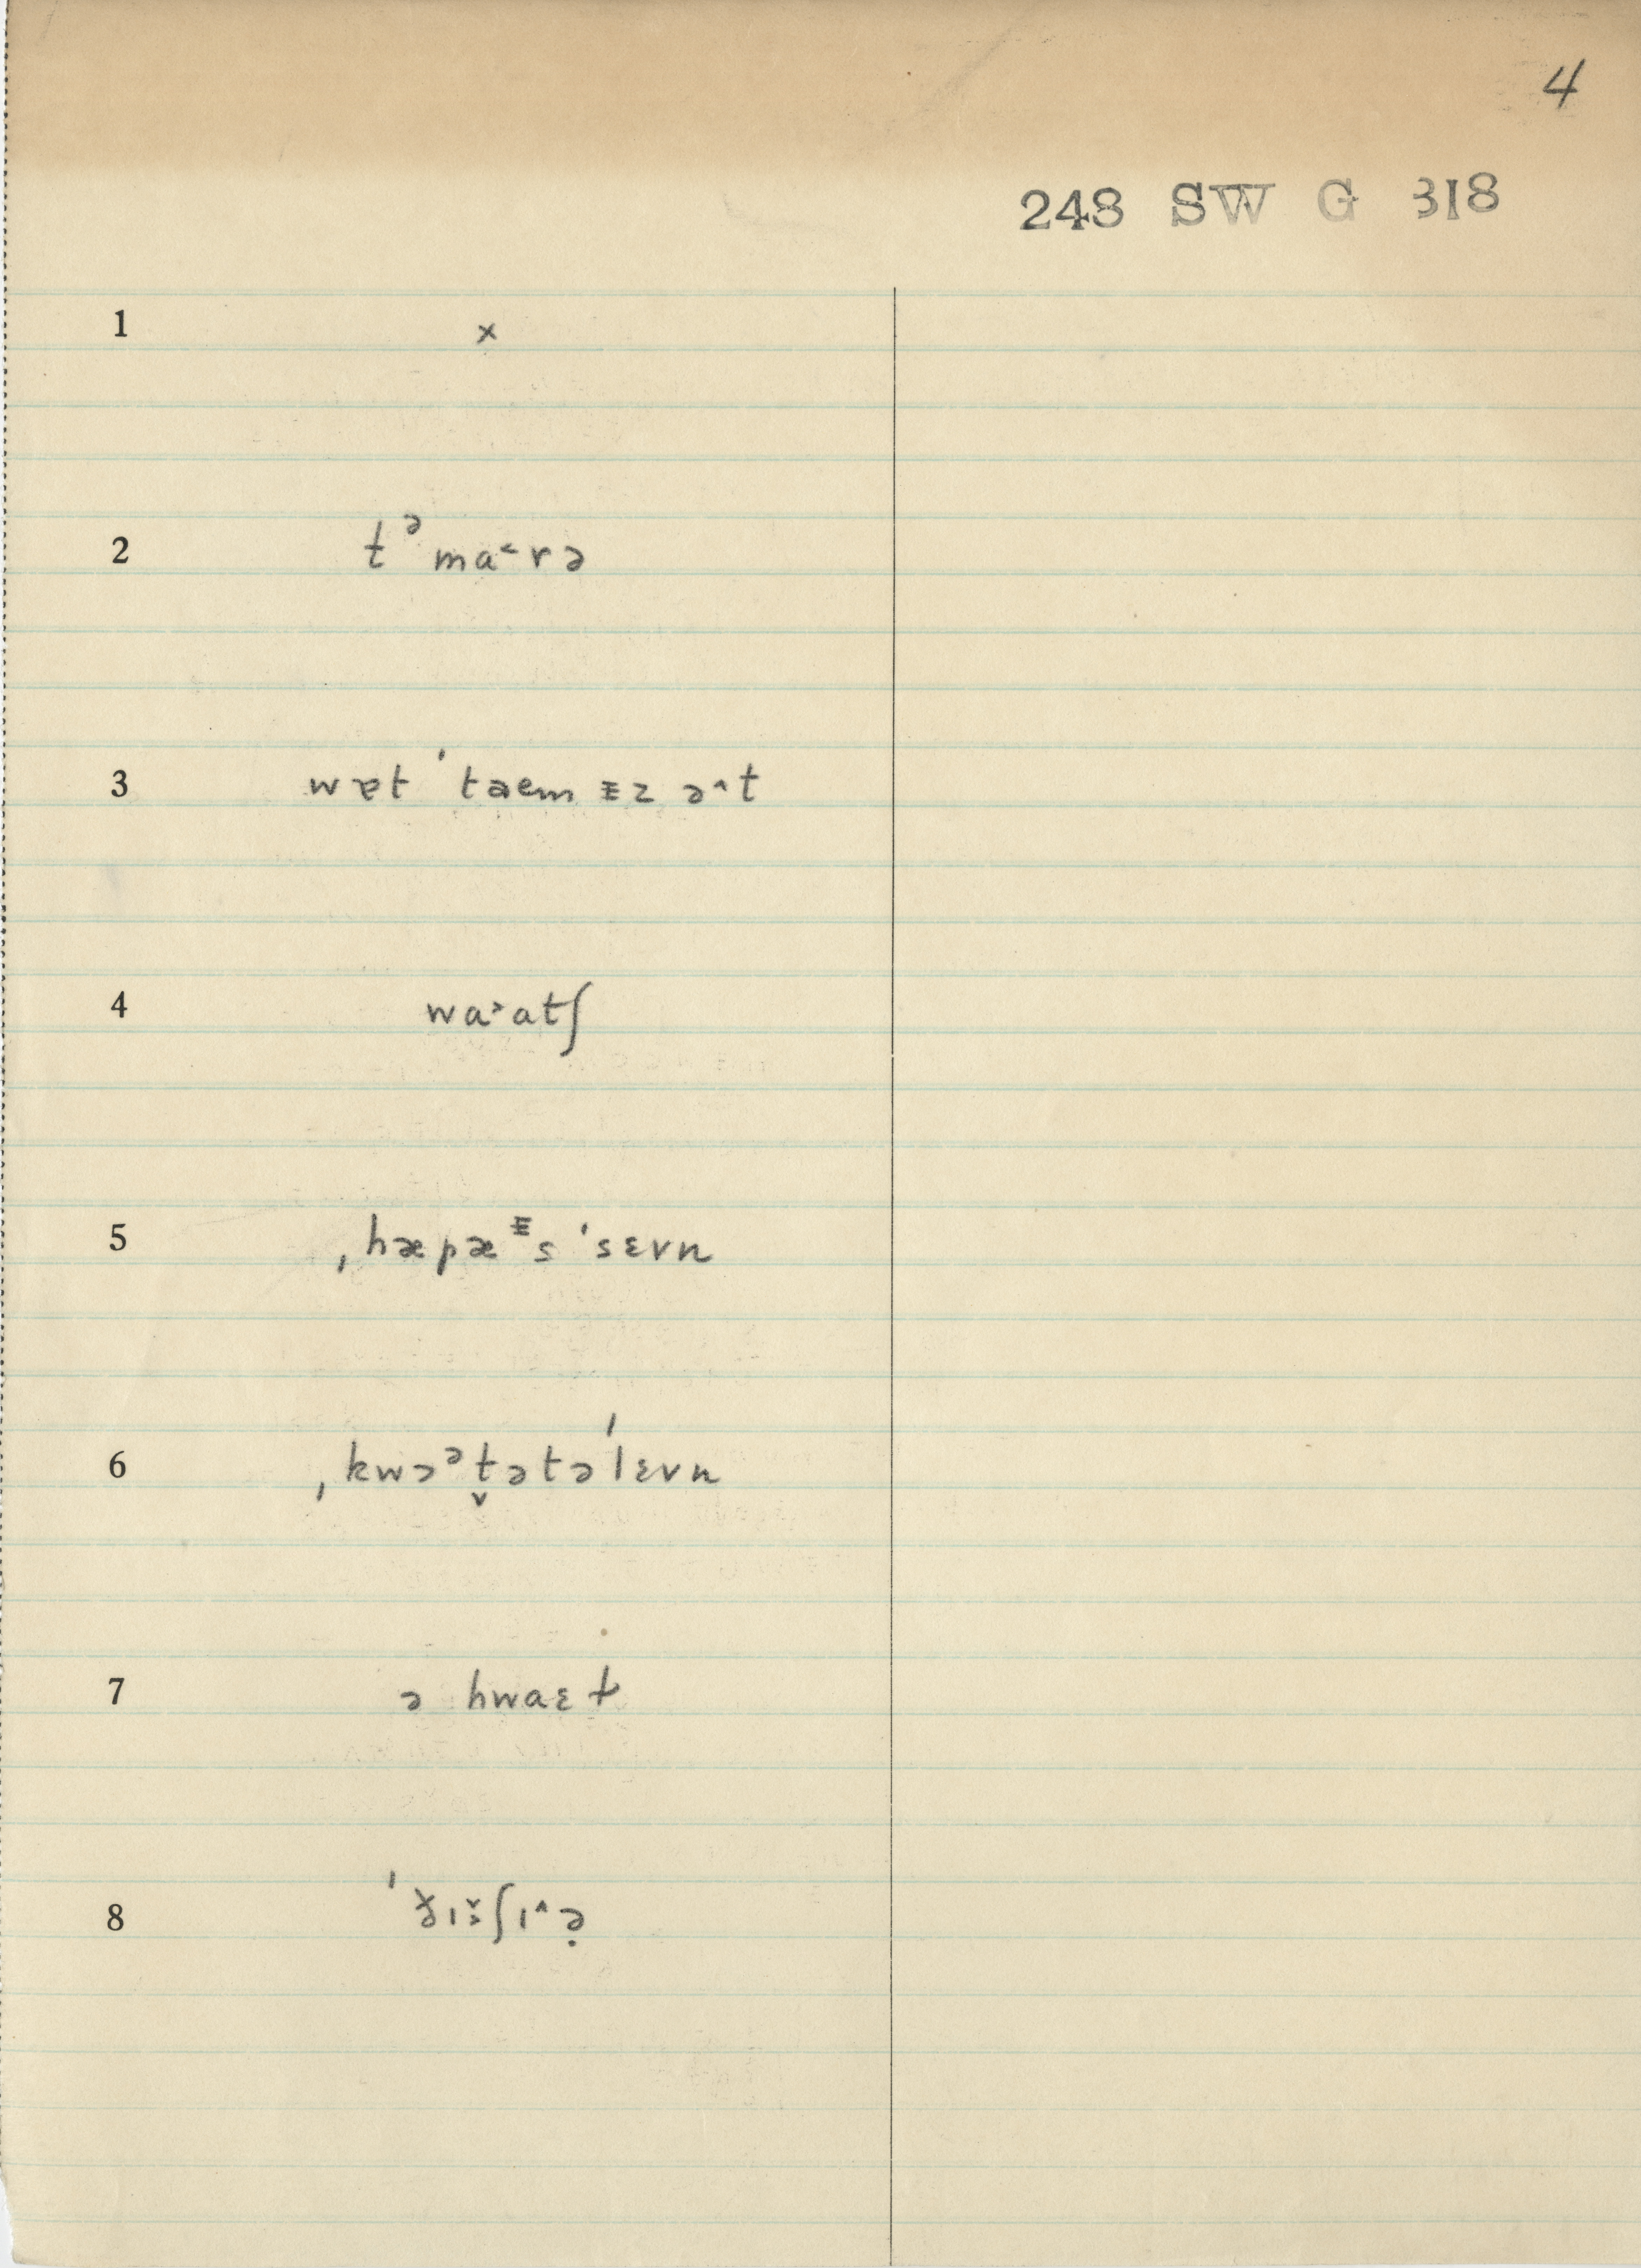 4
248 SW G 318
1 ×
2 tᵊma˂rə
3 wɐt ˈtəem ᵻz ə˄t
4 wa˃atʃ
5 ˌhæpæᵻs ˈsɛvn
6 ˌkwɔᵊt̬ətəˈlɛvn
7 ə hwaɛ
8